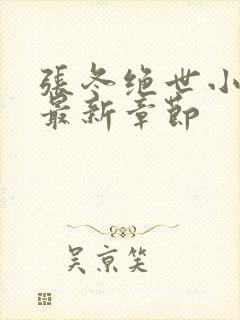 張冬绝世小
最新章節
吴京笑